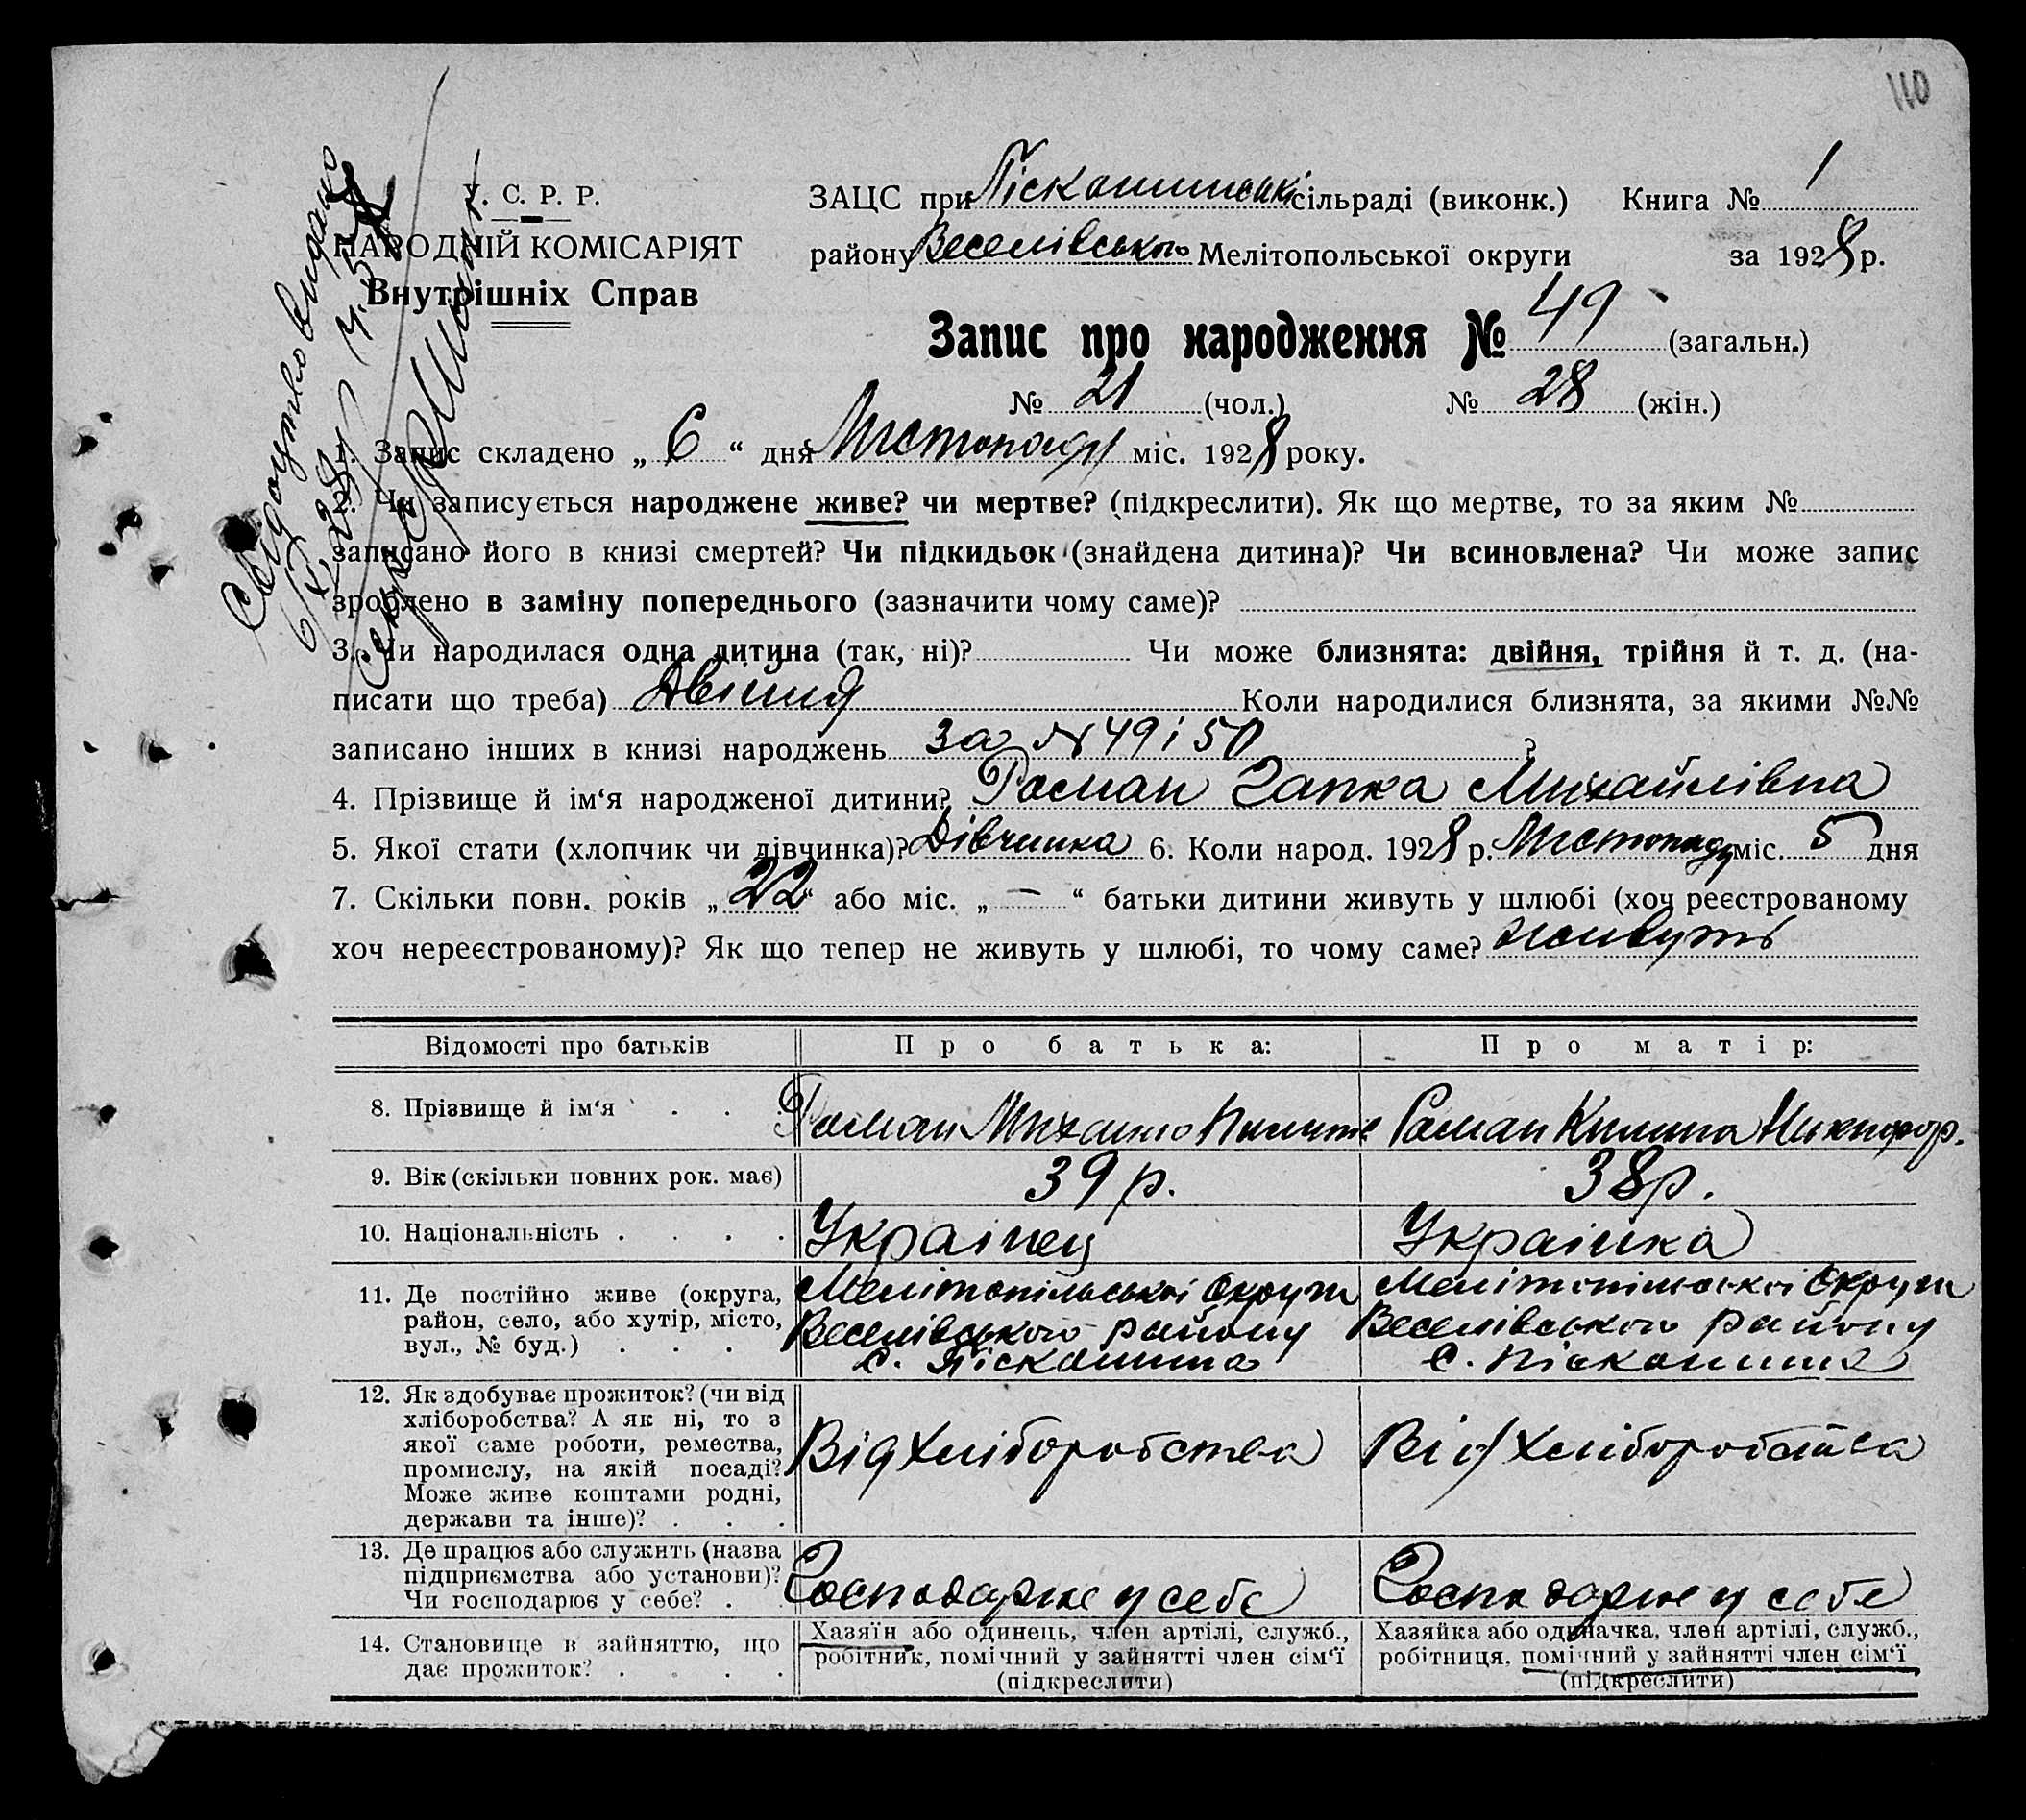 110
У. С. Р. Р.
НАРОДНІЙ КОМІСАРІЯТ
Внутрішніх Справ
ЗАЦС при Піскошинські сільраді (виконк.) Книга № 1
району Веселівського Мелітопольської округи за 1928 р.
Запис про народження № 49 (загальн.)
№ 21 (чол.) № 28 (жін.)
Свідоцтво видано
1. Запис складено „ 6 “ дня Листопаду міс. 1928 року.
2. Чи записується народжене живе? чи мертве? (підкреслити). Як що мертве, то за яким №
записано його в книзі смертей? Чи підкидьок (знайдена дитина)? Чи всиновлена? Чи може запис
зроблено в заміну попереднього (зазначити чому саме)?
3. Чи народилася одна дитина (так, ні)? Чи може близнята: двійня, трійня й т. д. (на-
писати що треба) Двійня Коли народилися близнята, за якими №№
записано інших в книзі народжень за № 49 і 50 ?
4. Прізвище й ім‘я народженої дитини? Роман Гапка Михайлівна
5. Якої стати (хлопчик чи дівчинка)? Дівчинка 6. Коли народ. 1928 р. Листопаду міс. 5 дня
7. Скільки повн. років „ 22 “ або міс. „ — “ батьки дитини живуть у шлюбі (хоч реєстрованому
хоч нереєстрованому)? Як що тепер не живуть у шлюбі, то чому саме? живуть
Відомості про батьків Про батька: Про матір:
8. Прізвище й ім‘я . . . Роман Михайло Роман Килина Никифор.
9. Вік (скільки повних рок. має) 39 р. 38 р.
10. Національність . . . . Украінец Украінка
11. Де постійно живе (округа,
район, село, або хутір, місто,
вул., № буд.) . . .
Мелітопільської Округи
Веселівського району
с. Піскошина
Мелітопільської Округи
Веселівського району
с. Піскошина
12. Як здобуває прожиток? (чи від
хліборобства? А як ні, то з
якої саме роботи, ремества,
промислу, на якій посаді?
Може живе коштами родні,
держави та інше)? . . .
Від Хліборобства
Від Хліборобства
13. Де працює або служить (назва
підприємства або установи)?
Чи господарює у себе? . .
Господарює у себе
Господарює у себе
14. Становище в зайняттю, що
дає прожиток? . . . .
Хазяїн або одинець, член артілі, служб.,
робітник, помічний у зайнятті член сім‘ї
(підкреслити)
Хазяйка або одиначка, член артілі, служб.,
робітниця, помічний у зайнятті член сім‘ї
(підкреслити)